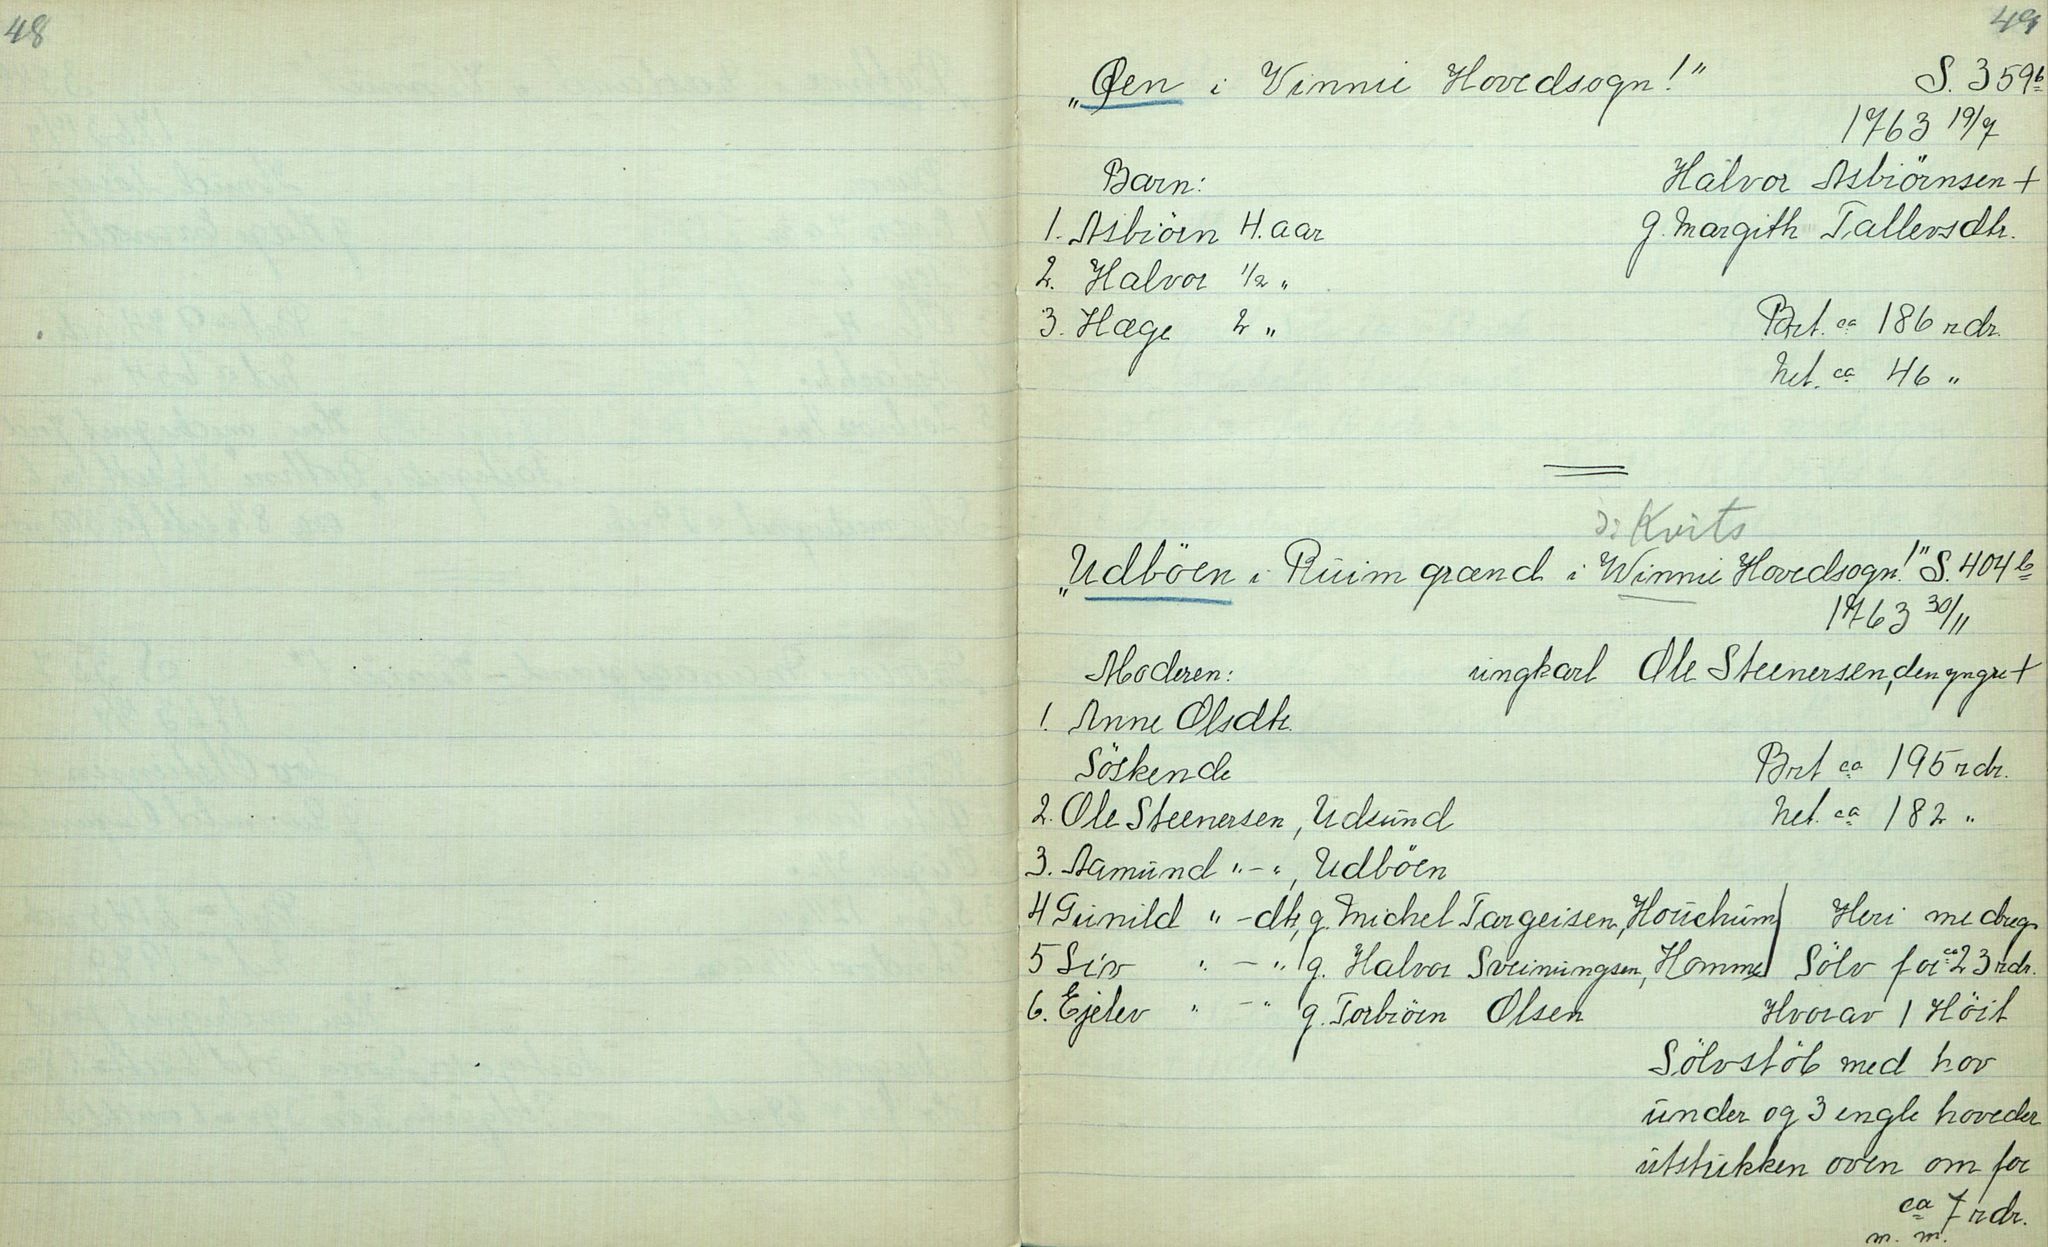 48
49
„Øen i Winnie Hovedsogn!" S. 359b
1763 19/7
Barn: Halvor Asbiörnsen +
1. Asbiörn 4. aar g. Margith Tallevsdtr.
2. Halvor 1/2 "
3. Hæge 2 " Brt. ca 186 rdr.
Net. ca 46 "
ɔ: Kvits
„Udböen i Ruim grænd i Winnie Hovedsogn!" S. 404b
1763 30/11
Moderen: ungkarl Ole Steenersen, den yngre +
1. Anne Olsdtr.
Söskende Brt ca 195 rdr.
2. Ole Steenersen, Udsund Net. ca 182 "
3. Aamund "-", Udböen
4 Gunild "-dtr, g. Michel Targeisen, Houchum Heri medreg.
5 Siv "-" g. Halvor Sveinungsen, Homme Sölv for ca 23 rdr.
6. Ejelev "-" g. Torbiörn Olsen Hvorav 1 Höit
Sölvstöb med hov
under og 3 engle hoveder
utstukken oven om for
ca 7 rdr.
m. m.